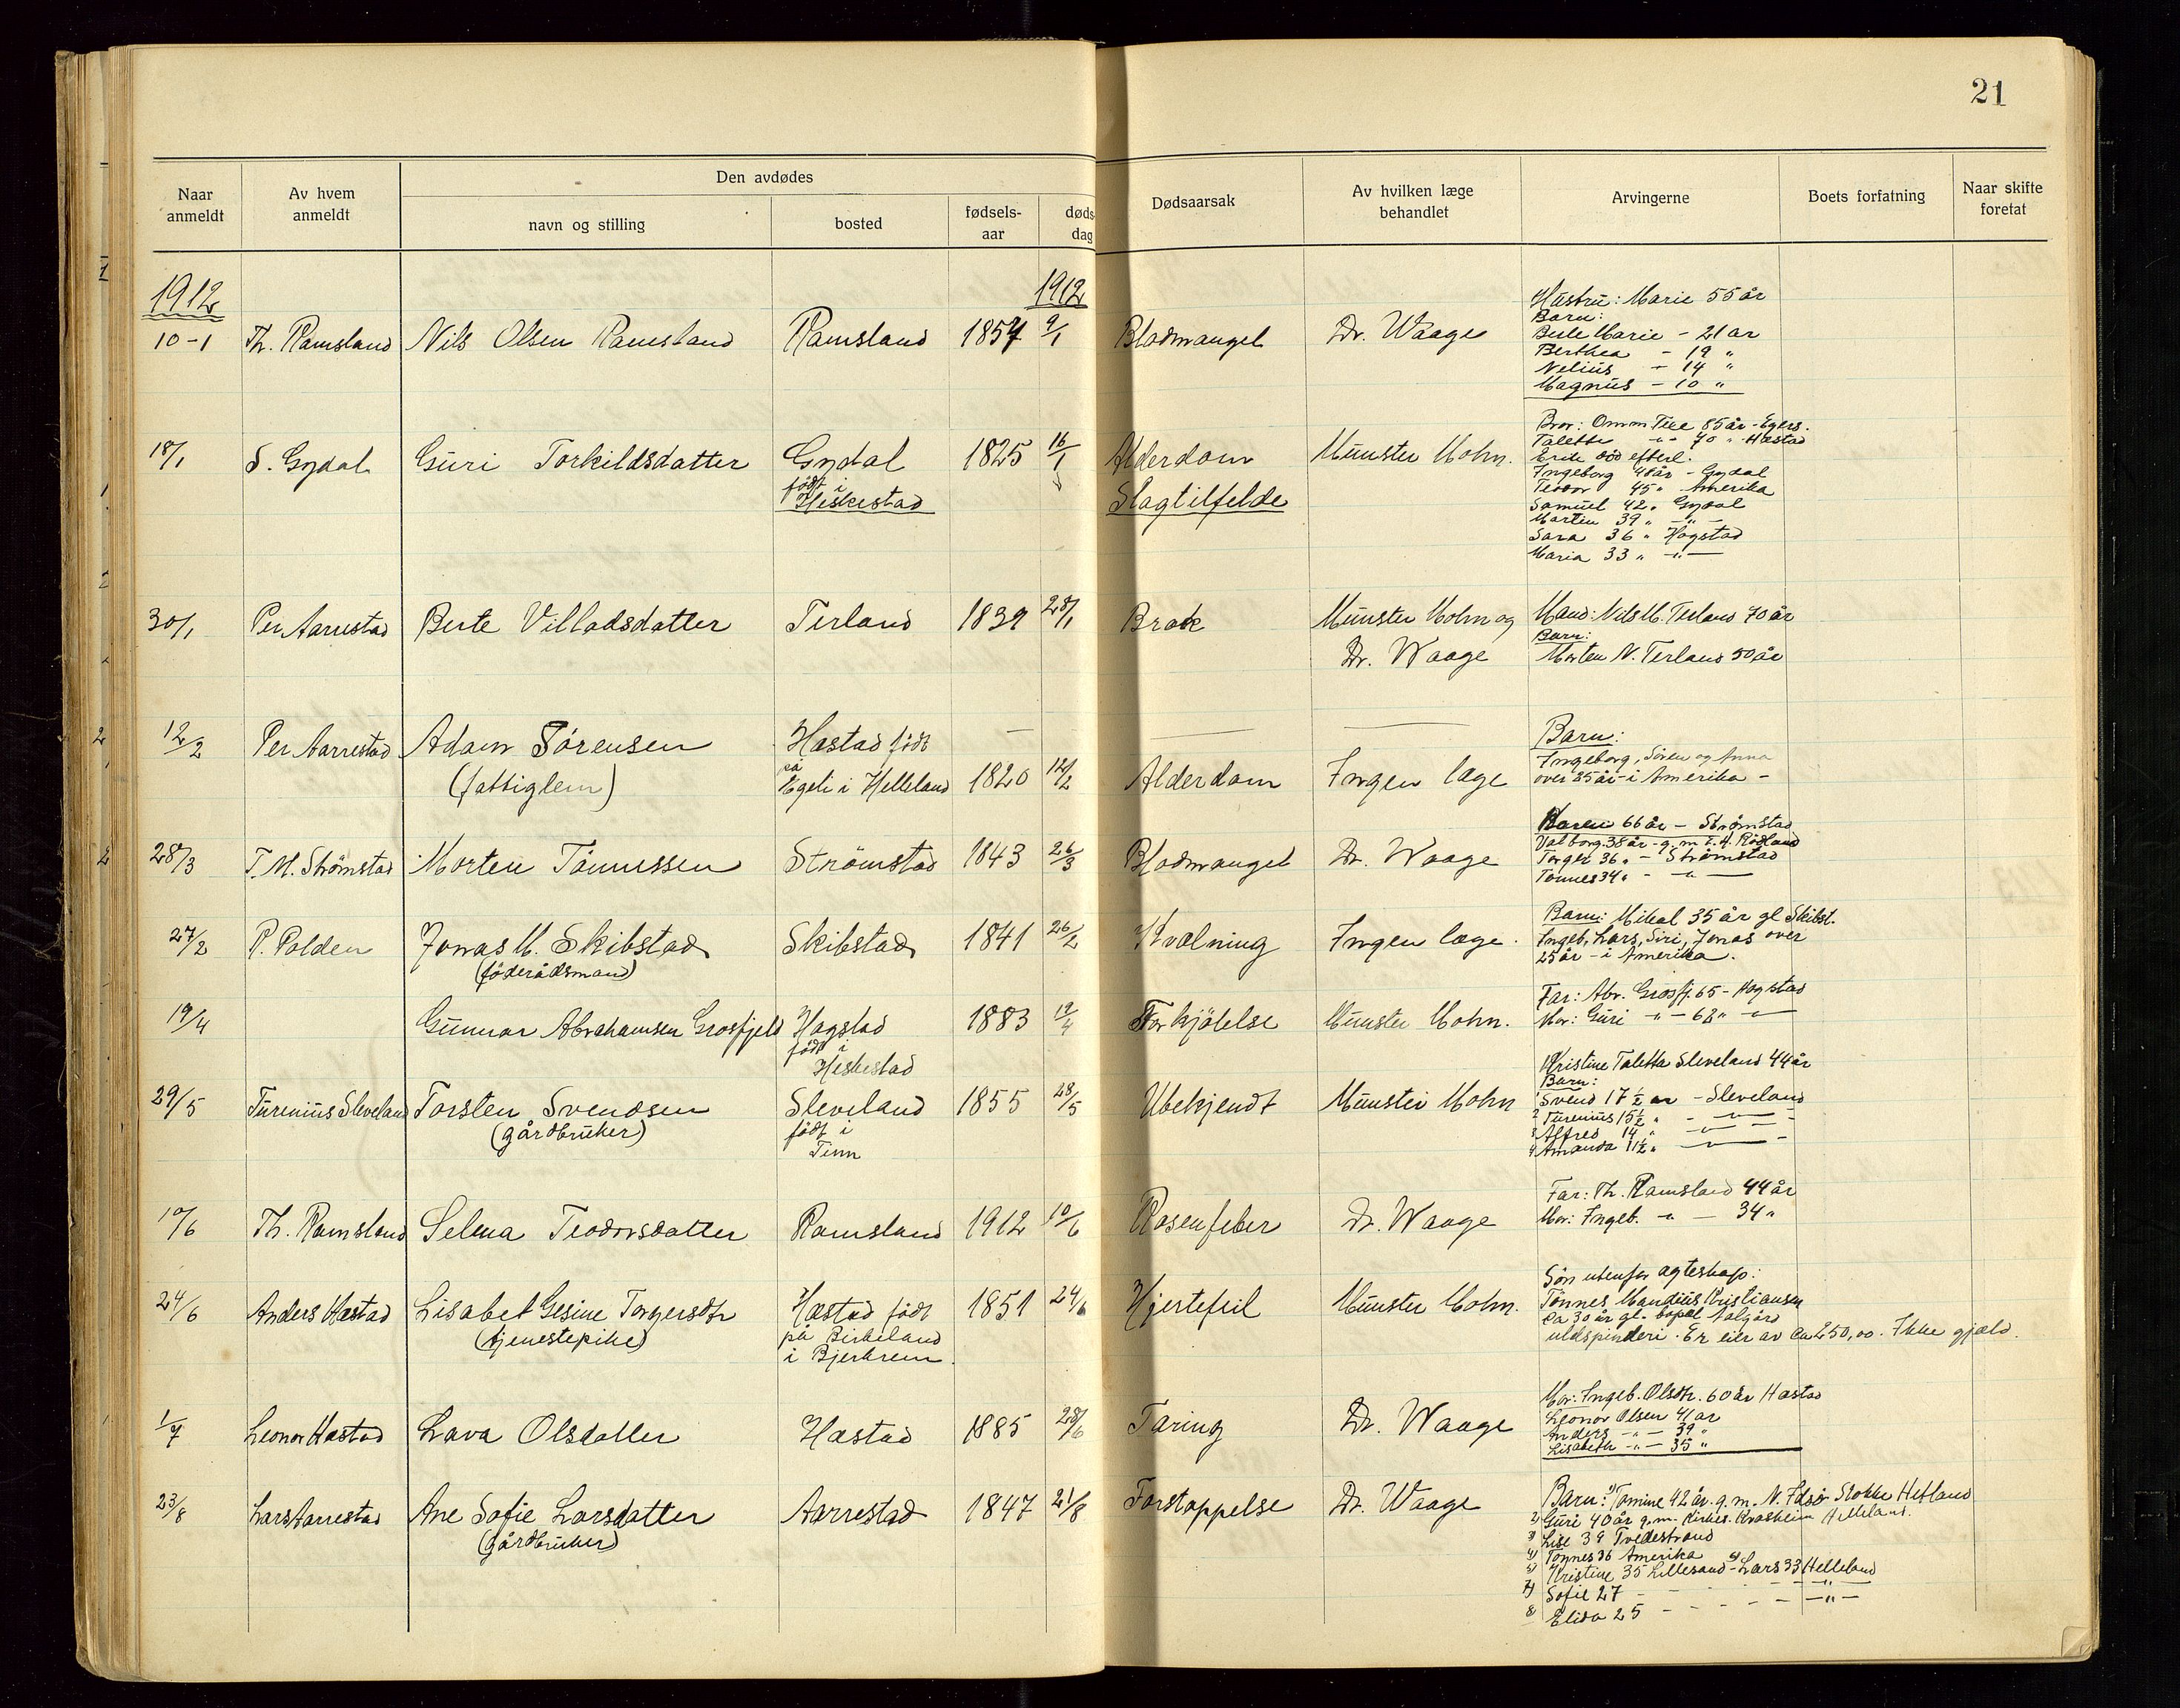 21
Naar anmeldt
Av hvem anmeldt
Den avdødes
navn og stilling
bosted
fødsels-aar
døds dag
Dødsaarsak
Av hvilken læge behandlet
Arvingerne
Boets forfatning
Naar skifte foretat
1912
1912
10-1 Th. Ramsland Nils Olsen Ramsland Ramsland 1857 9/1 Blodmangel Dr. Waage
Hustru: Marie 55 år
Barn:
Berte Marie - 21 år
Berthea - 19 "
Nelius - 14 "
Magnus - 10 "
18/1 S. Gydal Guri Torkildsdatter Gydal 1825 16/1 Alderdom Munster Mohn.
født i
Heskestad
Slagtilfelde
Bror: Omm Tee 85 år - Egers.
Talette -"- 70 " Hæstad
Erik død efterl.
Ingeborg 48 år - Gydal
Teodor 45 " Amerika
Samuel 42 " Gydal
Martin 39 " -"-
Sara 36 " Hogstad
Maria 33 " -"-
30/1 Per Aarrestad Berte Villadsdatter Terland 1839 28/1 Brok Munster Mohn og
Dr. Waage
Mand: Nils M. Terland 70 år
Barn:
Morten N. Terland 50 år
12/2 Per Aarrestad Adam Sørensen Hæstad født —
(fattiglem) på
Egeli i Helleland 1820 12/2 Alderdom Ingen læge
Barn:
Ingeborg, Søren og Anna
over 25 år - i Amerika -
28/3 T. M. Strømstad Morten Tønnessen Strømstad 1843 26/3 Blodmangel Dr. Waage
Karen 66 år - Strømstad
Valborg 38 år - g. m. T. H. Rødland
Torger 36 " - Strømstad
Tønnes 34 " - " -
27/2 P. Polden Jonas M. Skibstad Skibstad 1841 26/2 Kvælning Ingen læge.
(føderådsmand)
Barn: Mikal 35 år gl Skibst.
Ingeb, Lars, Siri, Jonas over
25 år - i Amerika.
19/4 Gunnar Abrahamsen Grosfjeld Hogstad 1883 19/4 Forkjølelse Munster Mohn.
født i
Heskestad
Far: Abr. Grosfj. 65 - Hogstad
Mor: Guri -"- 62 " -"-
29/5 Turenius Sleveland Torsten Svendsen Sleveland 1855 28/5 Ubekjendt Munster Mohn
(gårdbruker) født i
Tinn
Kristine Taletta Sleveland 44 år
Barn:
1 Svend 17½ år - Sleveland
2 Turenius 15½ " - " -
3 Alfred 14 " - " -
4 Amanda 11½ " - " -
10/6 Th. Ramsland Selma Teodorsdatter Ramsland 1912 10/6 Rosenfeber Dr. Waage
Far: Th. Ramsland 44 år
Mor: Ingeb. -"- 34 "
24/6 Anders Hæstad Lisabet Gesine Torgersdtr Hæstad født 1851 24/6 Hjertefeil Munster Mohn.
(tjenestepike) på Birkeland
i Bjerkrem.
Søn utenfor ægteskap:
Tønnes Mandius Kristiansen
ca 30 år gl. bopæl Aalgård
uldspinderi. Er eier av ca 250,00. Ikke gjæld.
1/7 Leonor Hæstad Lava Olsdatter Hæstad 1885 28/6 Tæring Dr. Waage
Mor: Ingeb. Olsdtr. 60 år Hæstad
Leonor Olsen 41 år
Anders -"- 39 "
Lisabeth -"- 35 "
23/8 Lars Aarrestad Ane Sofie Larsdatter Aarrestad 1847 21/8 Forstoppelse Dr. Waage
(gårdbruker)
Barn: 1) Tomine 42 år. g. m. N. Idsø Stokke Hetland
2) Guri 40 år g. m. Helleland.
3) Lise 39 Tvedestrand
4) Tønnes 36 Amerika
5) Kristine 35 Lillesand - 6) Lars 33 Helleland
7) Sofie 27 - - - - -"-
8) Elida 25 - - - - -"-